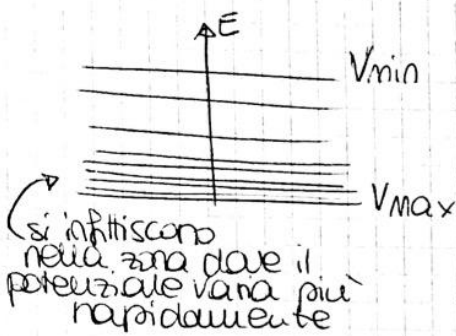 E
Vmin
VMAX
si infittiscono
nella zona dove il
potenziale varia più
rapidamente